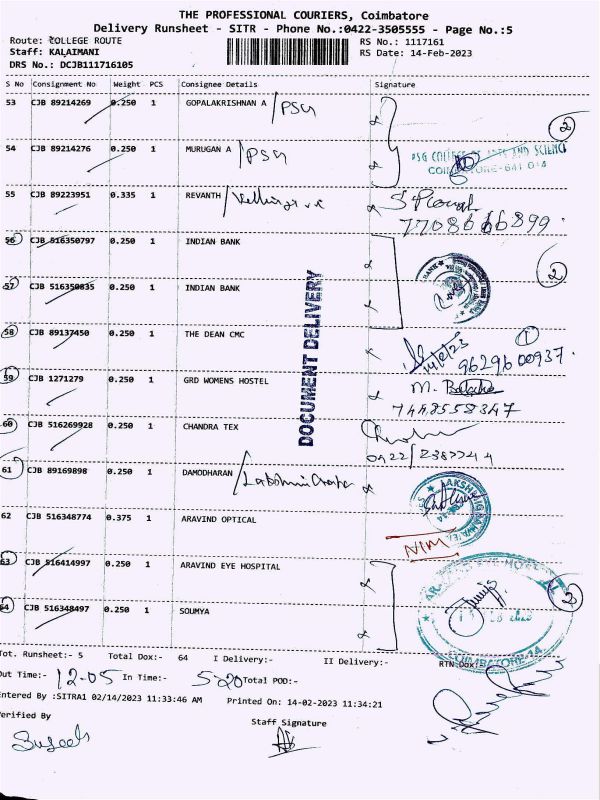 THE PROFESSIONAL COURIERS, Coimbatore
Delivery Runsheet - SITR - Phone No.:0422-3505555 - Page No.:5
Route: COLLEGE ROUTE RS No.: 1117161
Staff: KALAIMANI RS Date: 14-Feb-2023
DRS No.: DCJB111716105
S No Consignment No Weight PCS Consignee Details Signature
53 CJB 89214269 0.250 1 GOPALAKRISHNAN A / PSG
2
54 CJB 89214276 0.250 1 MURUGAN A / PSG
PSG COLLEGE OF ARTS AND SCIENCE
COIMBATORE-641 014
55 CJB 89223951 0.335 1 REVANTH /
7708666899
56 CJB 516350797 0.250 1 INDIAN BANK
2
57 CJB 516350835 0.250 1 INDIAN BANK
DOCUMENT DELIVERY
58 CJB 89137450 0.250 1 THE DEAN CMC
1
14/2/23 9629600937
59 CJB 1271279 0.250 1 GRD WOMENS HOSTEL
M.
7448558347
60 CJB 516269928 0.250 1 CHANDRA TEX
0422/2382244
61 CJB 89169898 0.250 1 DAMODHARAN /
62 CJB 516348774 0.375 1 ARAVIND OPTICAL
NIM
63 CJB 516414997 0.250 1 ARAVIND EYE HOSPITAL
ARAVIND EYE HOSPITAL
2
64 CJB 516348497 0.250 1 SOUMYA
COIMBATORE-14
Tot. Runsheet:- 5 Total Dox:- 64 I Delivery:- II Delivery:- RTN Dox:
Out Time:- 12-05 In Time:- 5-20 Total POD:-
Entered By :SITRA1 02/14/2023 11:33:46 AM Printed On: 14-02-2023 11:34:21
Verified By Staff Signature